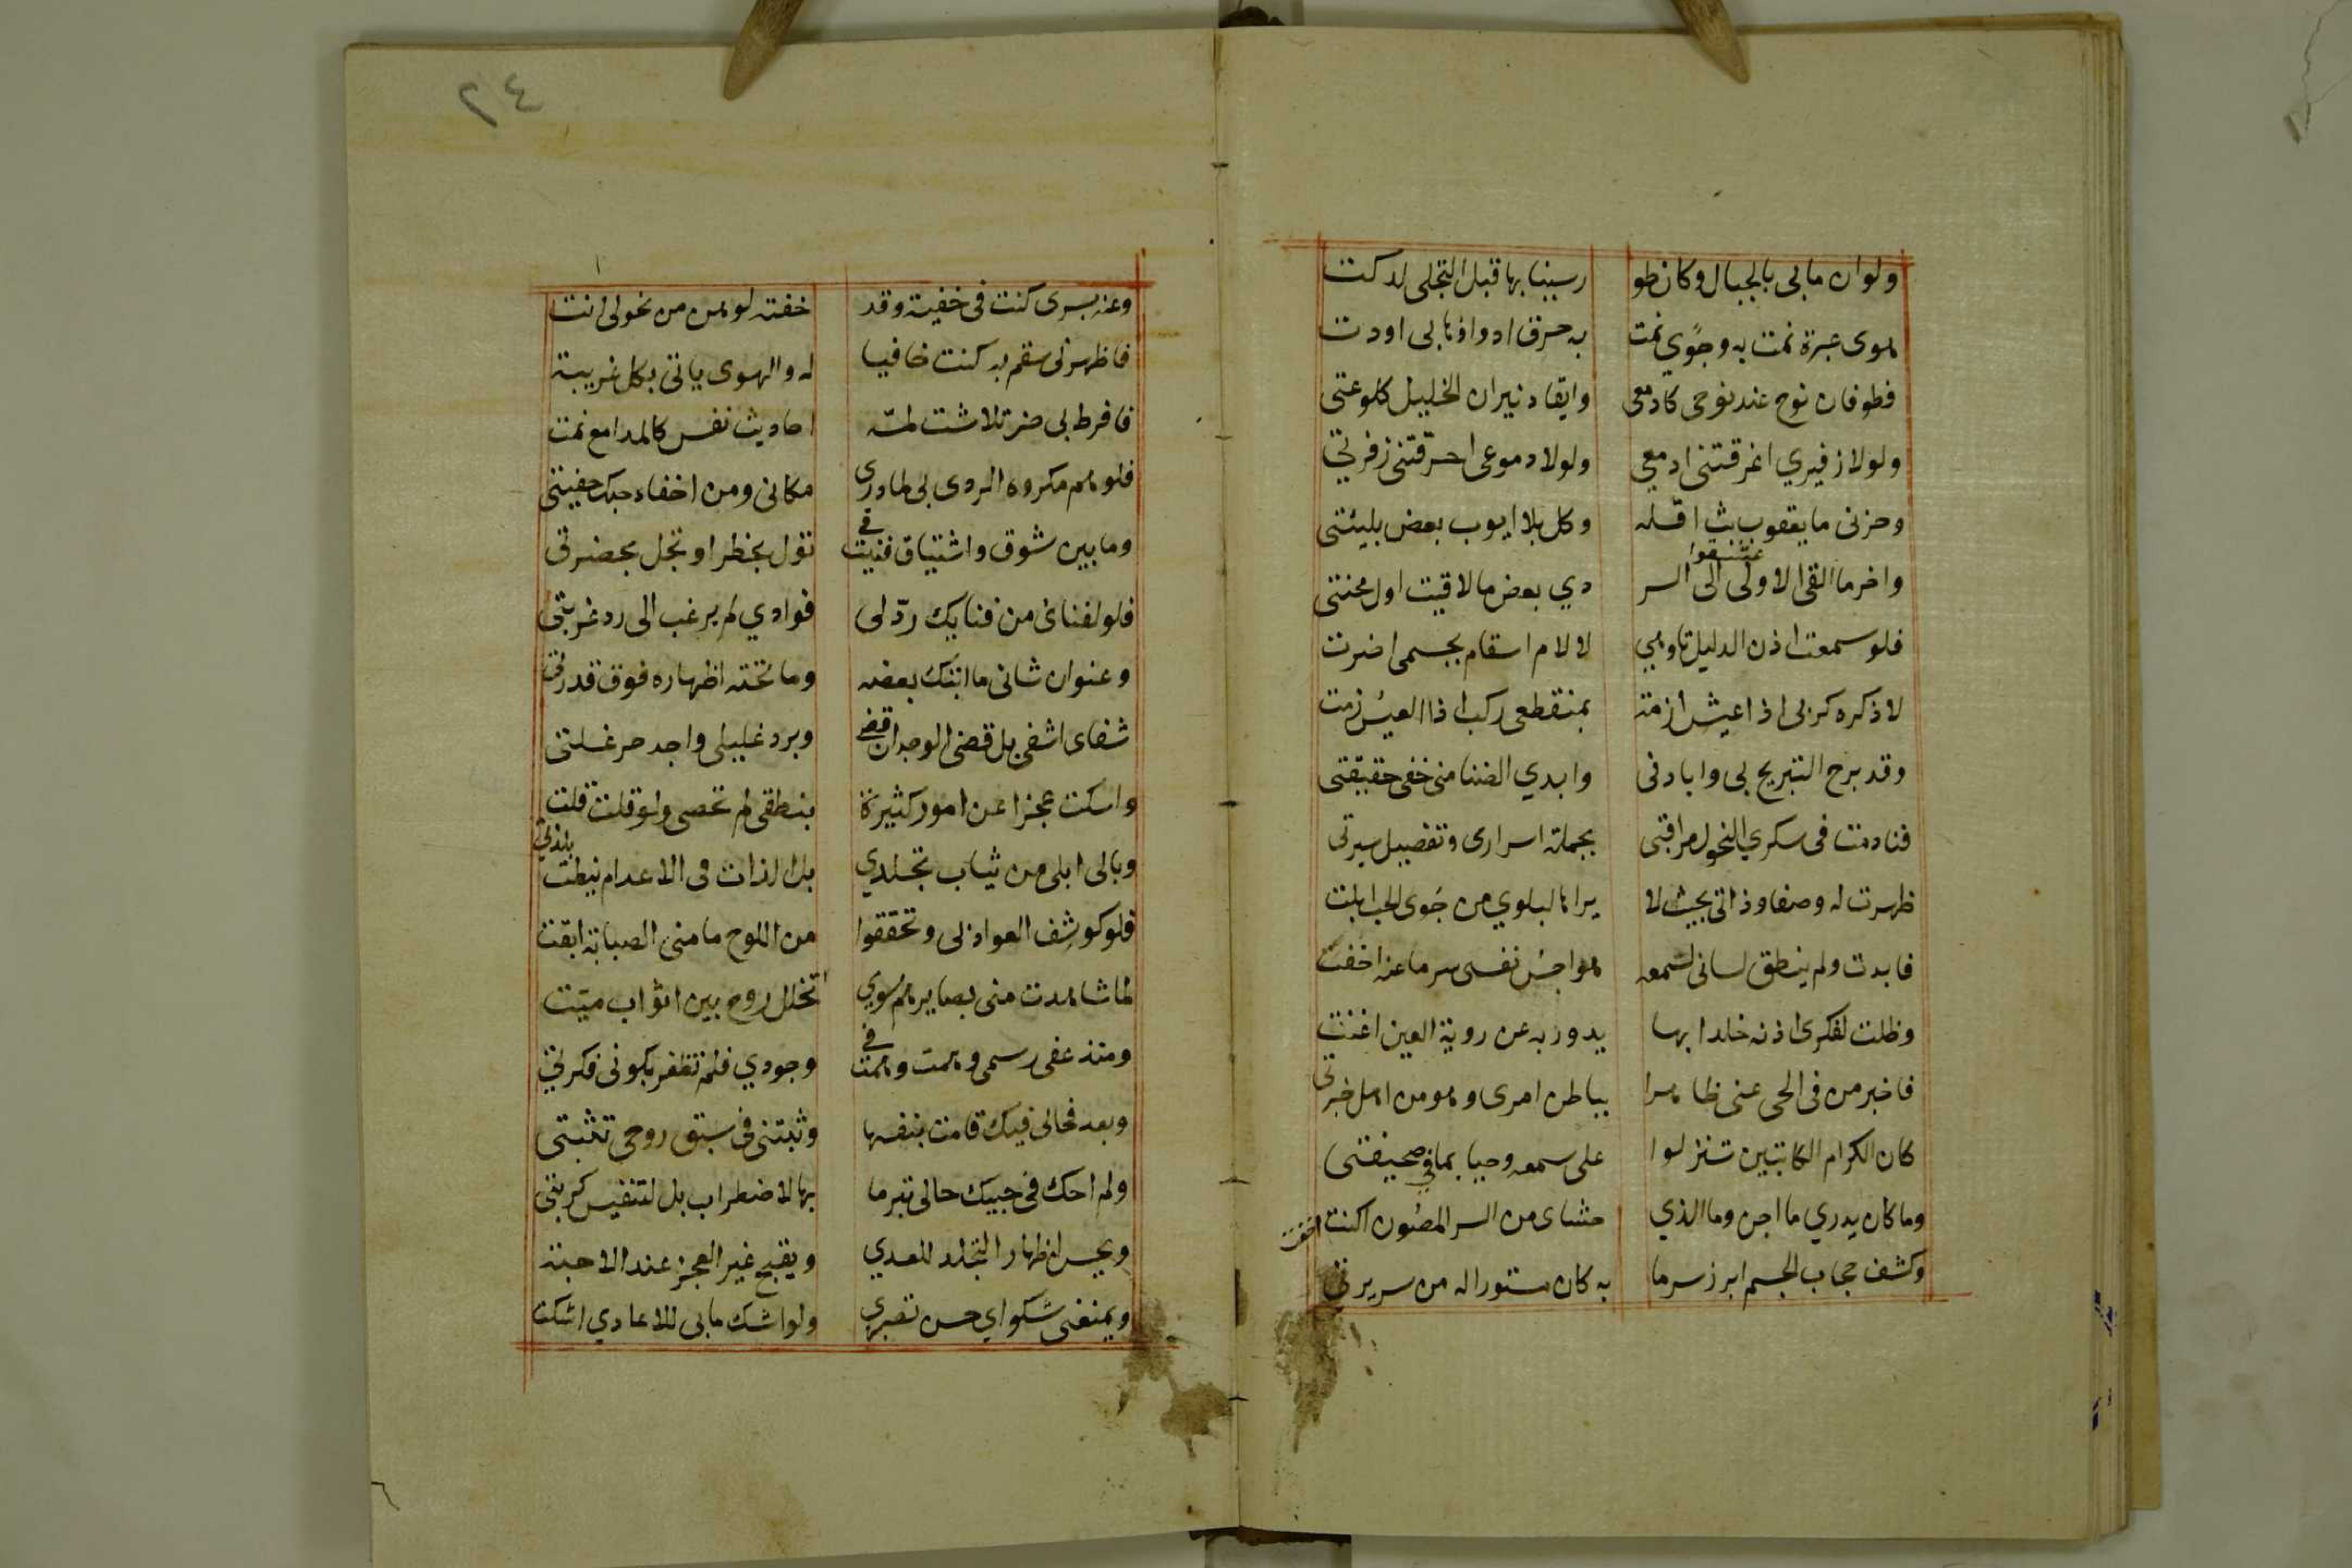 ولوان مابی بالجبال وكان طو رسينا بها قبل التجلی لدكت
هوی عبرة نمت به وجوًی نمت به حرق ادواؤها بی اودت
فطوفان نوح عند نوحی كادمعی وايقاد نيران الخليل كلوعتی
ولولا زفيري اغرقتنی ادمعي ولولا دموعی احرّقتنی زفرتي
وحزنی ما يعقوب بث اقلّه وكل بلا ايوب بعض بليتی
عشقوا
واخر ما القی الاولی الی السر دي بعض ما لاقيت اول محنتی
فلو سمعت اذن الدليل تاوهي لالام اسقام بجسمی اضرت
لاذكره كربی اذا عيش ازمة بمنقطعی ركب اذا العيس زمت
وقد برح التبريح بی وابادنی وابدي الضنا منی خفی حقيقتی
فنادمت فی سكري النحول مراقبتی بجملة اسراری وتفصيل سيرتی
ظهرت له وصفا وذاتی بحيث لا يراها لبلوي من جوی الحب ابلت
فابدت ولم ينطق لسانی لسمعه هواجس نفسی سر ما عنه اخفت
وظلت لفكری اذنه خلدا بها يدور به عن روية العين اغنت
فاخبر من فی الحی عنی ظاهرا بباطن امری وهو من اهل خبرتی
كان الكرام الكاتبين تنزلوا علی سمعه وحيا بما في صحيفتی
وما كان يدري ما اجن وما الذي حشای من السر المصون اكنت
اخفت
وكشف حجاب الجسم ابرز سر ما به كان مستورا له من سريرتی
٢٤
وعنه بسری كنت فی خفية وقد خفته لوهن من نحولی انت
فاظهرنی سقم به كنت خافيا له والهوی ياتی بكل غريبة
فافرط بی ضر تلاشت لمسّه احاديث نفس كالمدامع نمت
فلو هم مكروه الردی بی لما دری مكانی ومن اخفاء حبك خفيتی
وما بين شوق واشتياق فنيت فی تول بخطر او تجل بحضرتی
فلو لفنائ من فنايك ردّ لی فوادي لم يرغب الی رد غربتی
وعنوان شانی ما ابثك بعضه وما تحته اظهاره فوق قدرتی
شفای اشفی بل قضی الوجد ان قضی وبرد غليلی واجد حر غلتی
واسكت عجزا عن امور كثيرة بنطقی لم تحصی ولو قلت قلت
وبالی ابلی من ثياب تجلدي بل الذات فی الاعدام نيطت بلذتي
فلو كوشِف العواد بی وتحققوا من اللوح ما منی الصبابة ابقت
لما شاهدت منی بصايرهم سوي تخلل روح بين اثواب ميّت
ومنذ عفی رسمی وهمت وهمت فی وجودي فلم تظفر بكونی فكرتي
وبعد فحالی فيك قامت بنفسها وثبتنی فی سبق روحی تثبتی
ولم احك فی حبيك حالی تبرما بها لاضطراب بل لتنفيس كربتی
ويحسن اظهار التجلد للعدي ويقبح غير العجز عند الاحبة
ويمنعنی شكواي حسن تصبري ولو اشك مابی للاعادي اشكت